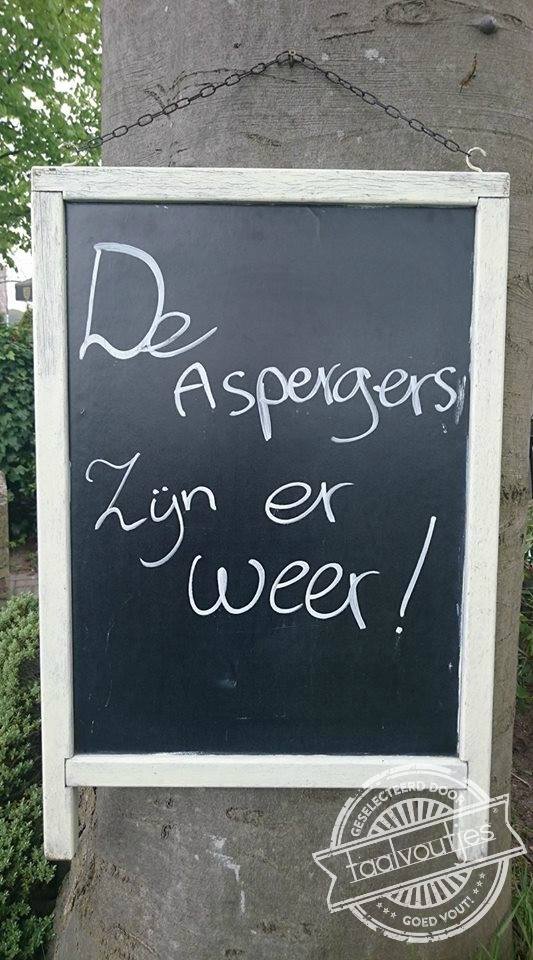 De
Aspergers
Zijn er
weer!
GESELECTEERD DOOR
taalvoutjes
GOED VOUT!